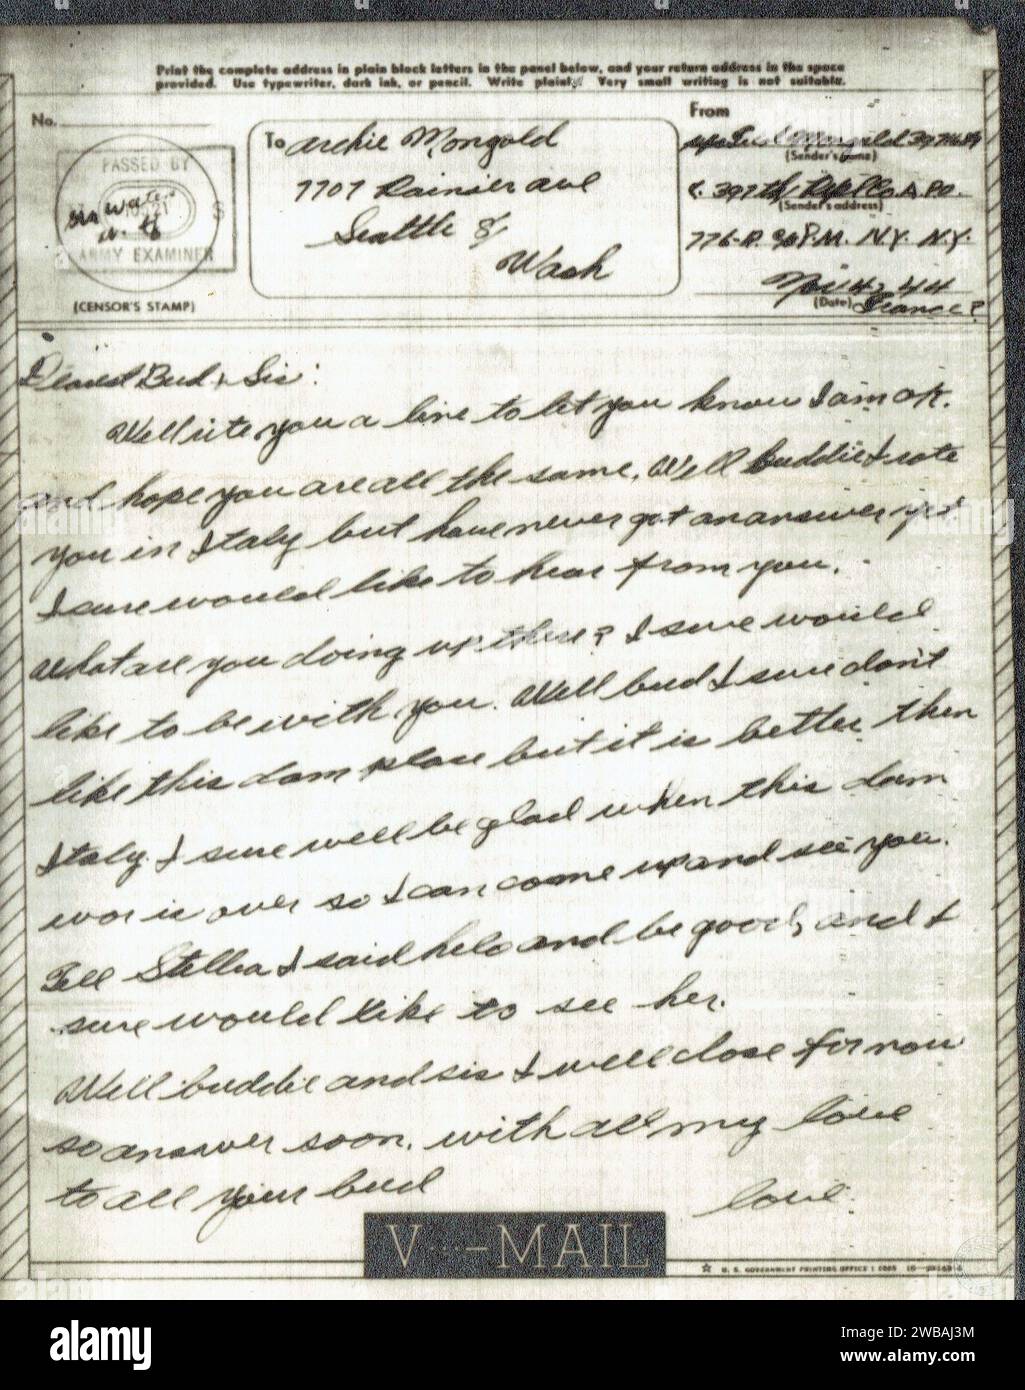 Print the complete address in plain block letters in the panel below, and your return address in the space
provided. Use typewriter, dark ink, or pencil. Write plainly. Very small writing is not suitable.
No.
PASSED BY
ARMY EXAMINER
(CENSOR'S STAMP)
To Archie Mongold
7707 Rainier ave
Seattle 8
Wash
From
Mongold
(Sender's name)
397th A.P.O.
(Sender's address)
776 P.M. N.Y. N.Y.
Nov 4, 44
(Date) France?
Dearest Bud & Sis:
Well rite you a line to let you know I am ok.
and hope you are all the same. Well buddie I rote
you in Italy but have never got an answer yet.
I sure would like to hear from you.
What are you doing up there? I sure would
like to be with you. Well bud I sure don't
like this dam place but it is better then
Italy. I sure well be glad when this dam
wor is over so I can come up and see you.
Tell Stella I said helo and be good, and I
sure would like to see her.
Well buddie and sis I well close for now
so answer soon. with all my love
to all your bud
love.
V···-MAIL
U. S. GOVERNMENT PRINTING OFFICE
alamy
Image ID: 2WBAJ3M
www.alamy.com